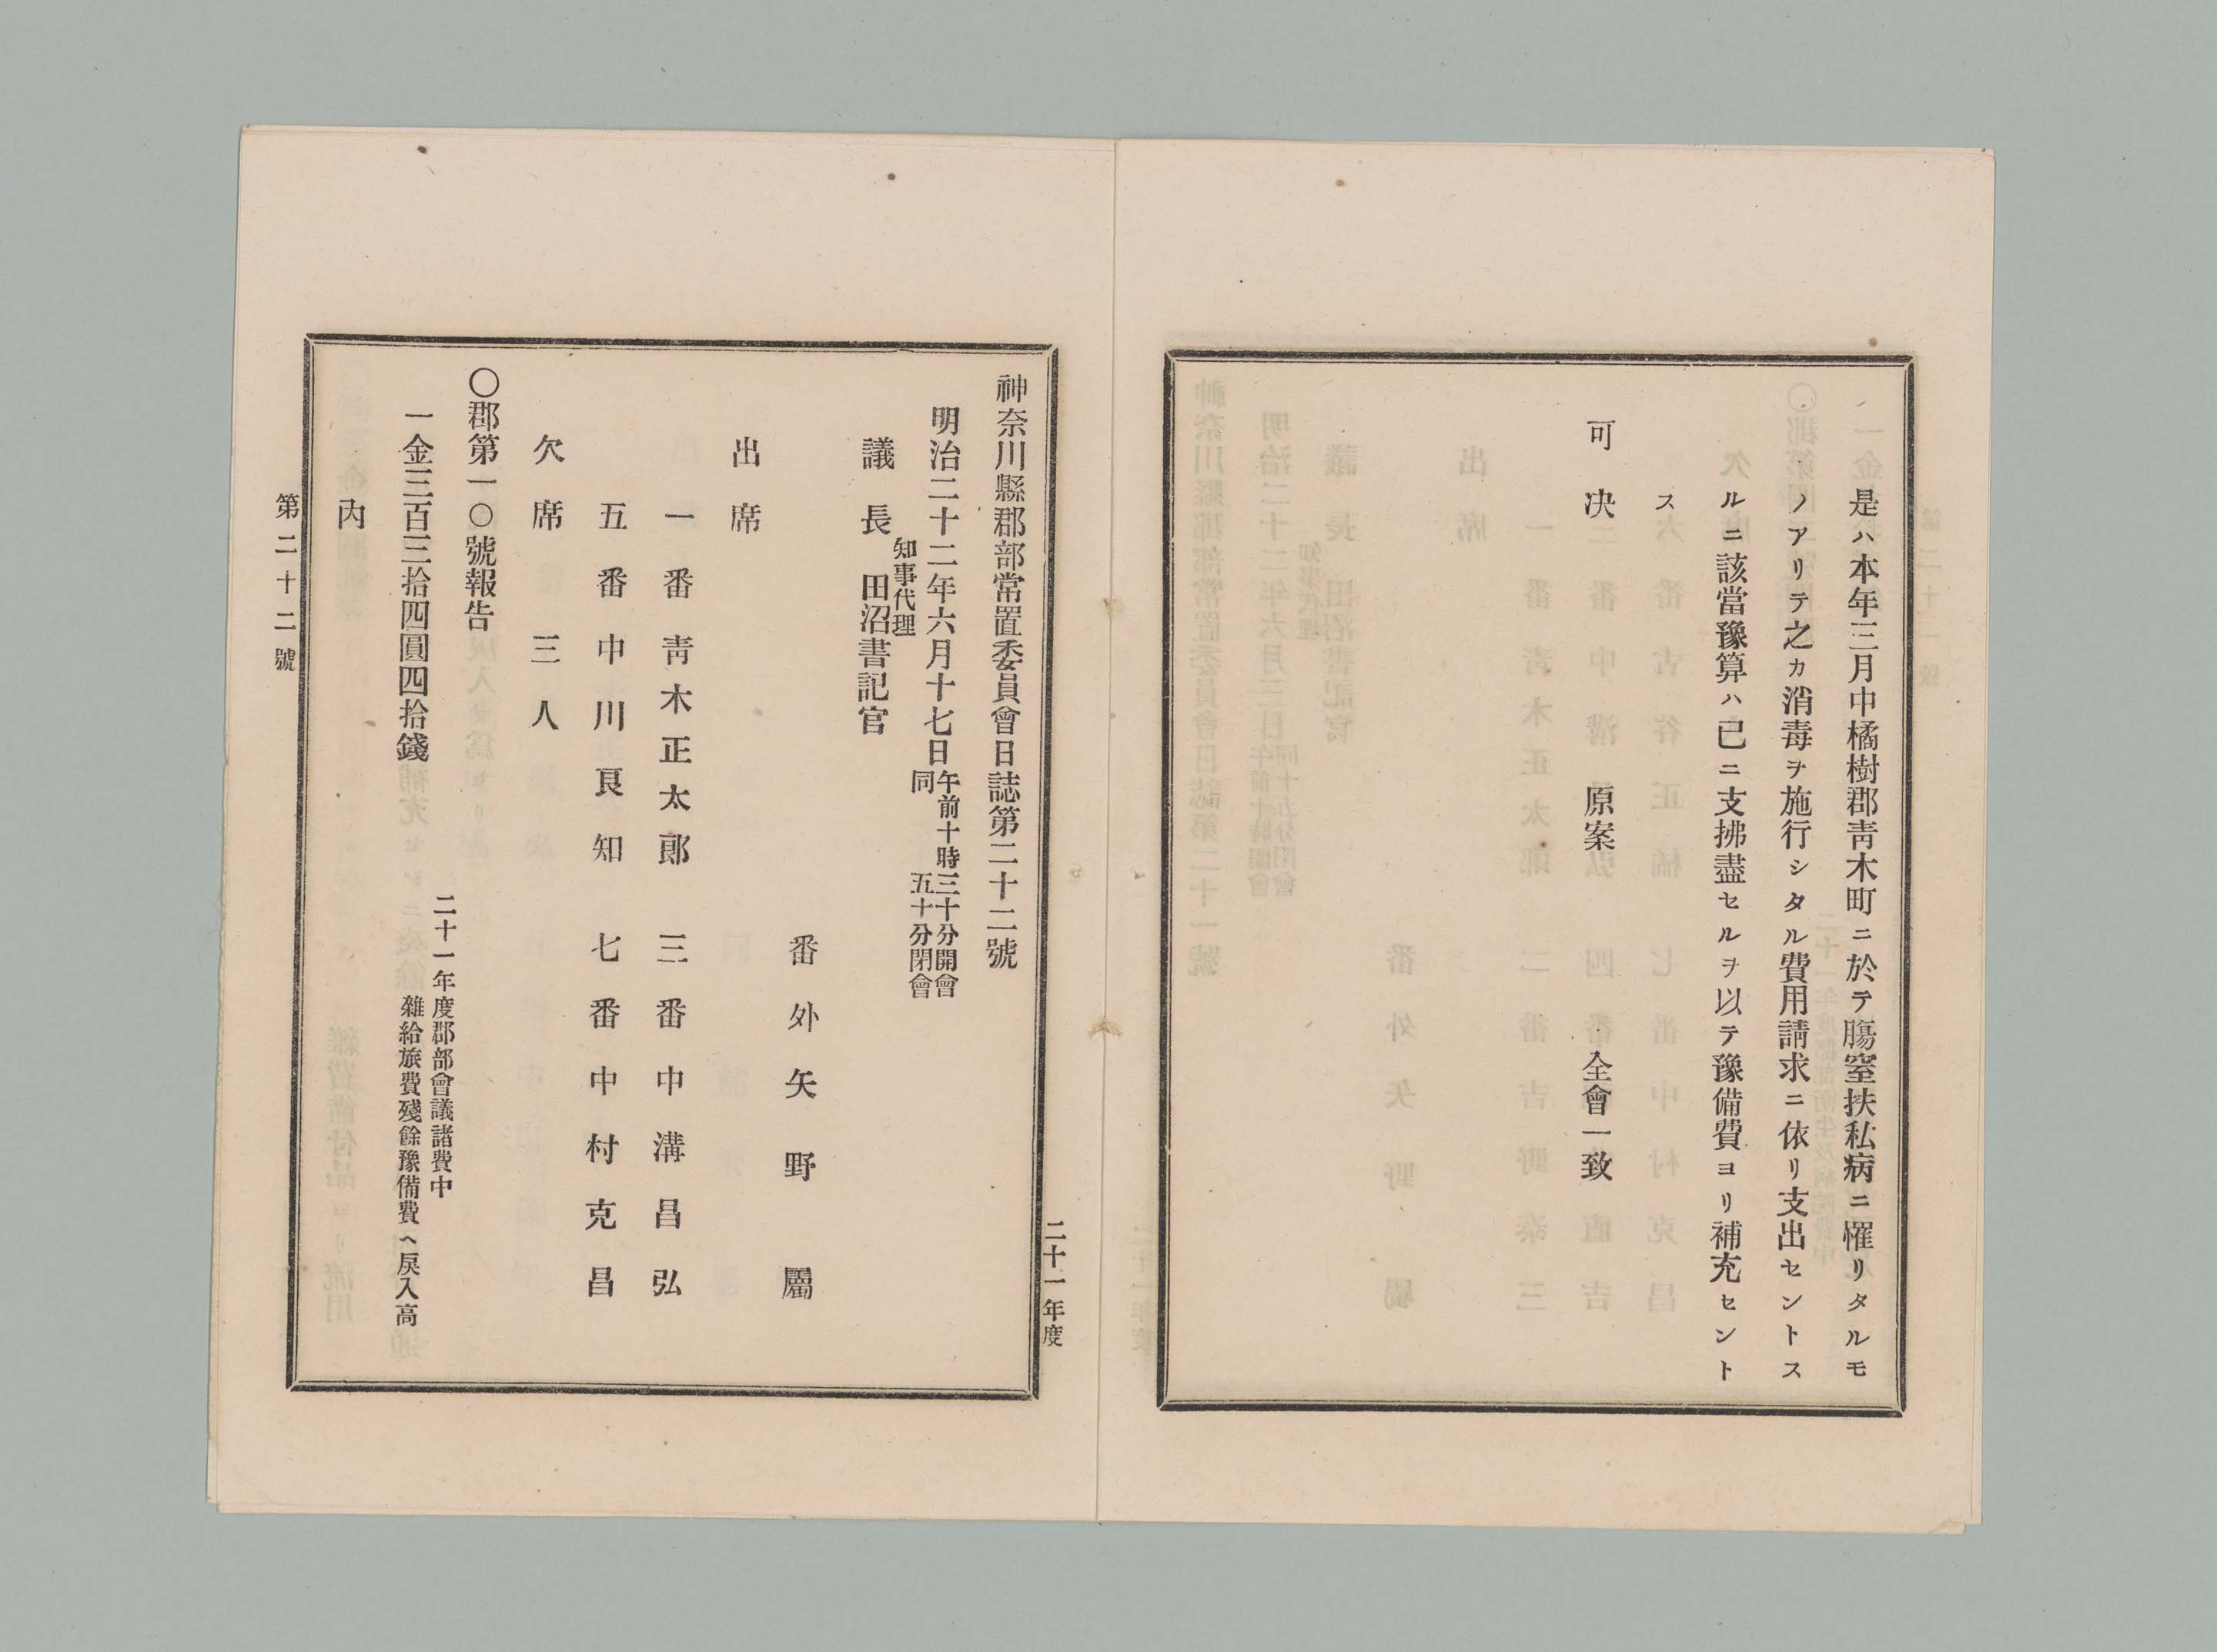 是ハ本年三月中橘樹郡靑木町ニ於テ膓窒扶私病ニ罹リタルモ
ノアリテ之カ消毒ヲ施行シタル費用請求ニ依リ支出セントス
ルニ該當豫算ハ已ニ支拂盡セルヲ以テ豫備費ヨリ補充セント
ス
可決 原案 全會一致
二十一年度
神奈川縣郡部常置委員會日誌第二十二號
明治二十二年六月十七日午前十時三十分開會
同五十分閉會
知事代理
議長 田沼書記官
番外矢野屬
出席
一番靑木正太郞 三番中溝昌弘
五番中川良知 七番中村克昌
欠席 三人
〇郡第一〇號報告
二十一年度郡部會議諸費中
一金三百三拾四圓四拾錢 雜給旅費殘餘豫備費ヘ戾入高
內
第二十二號